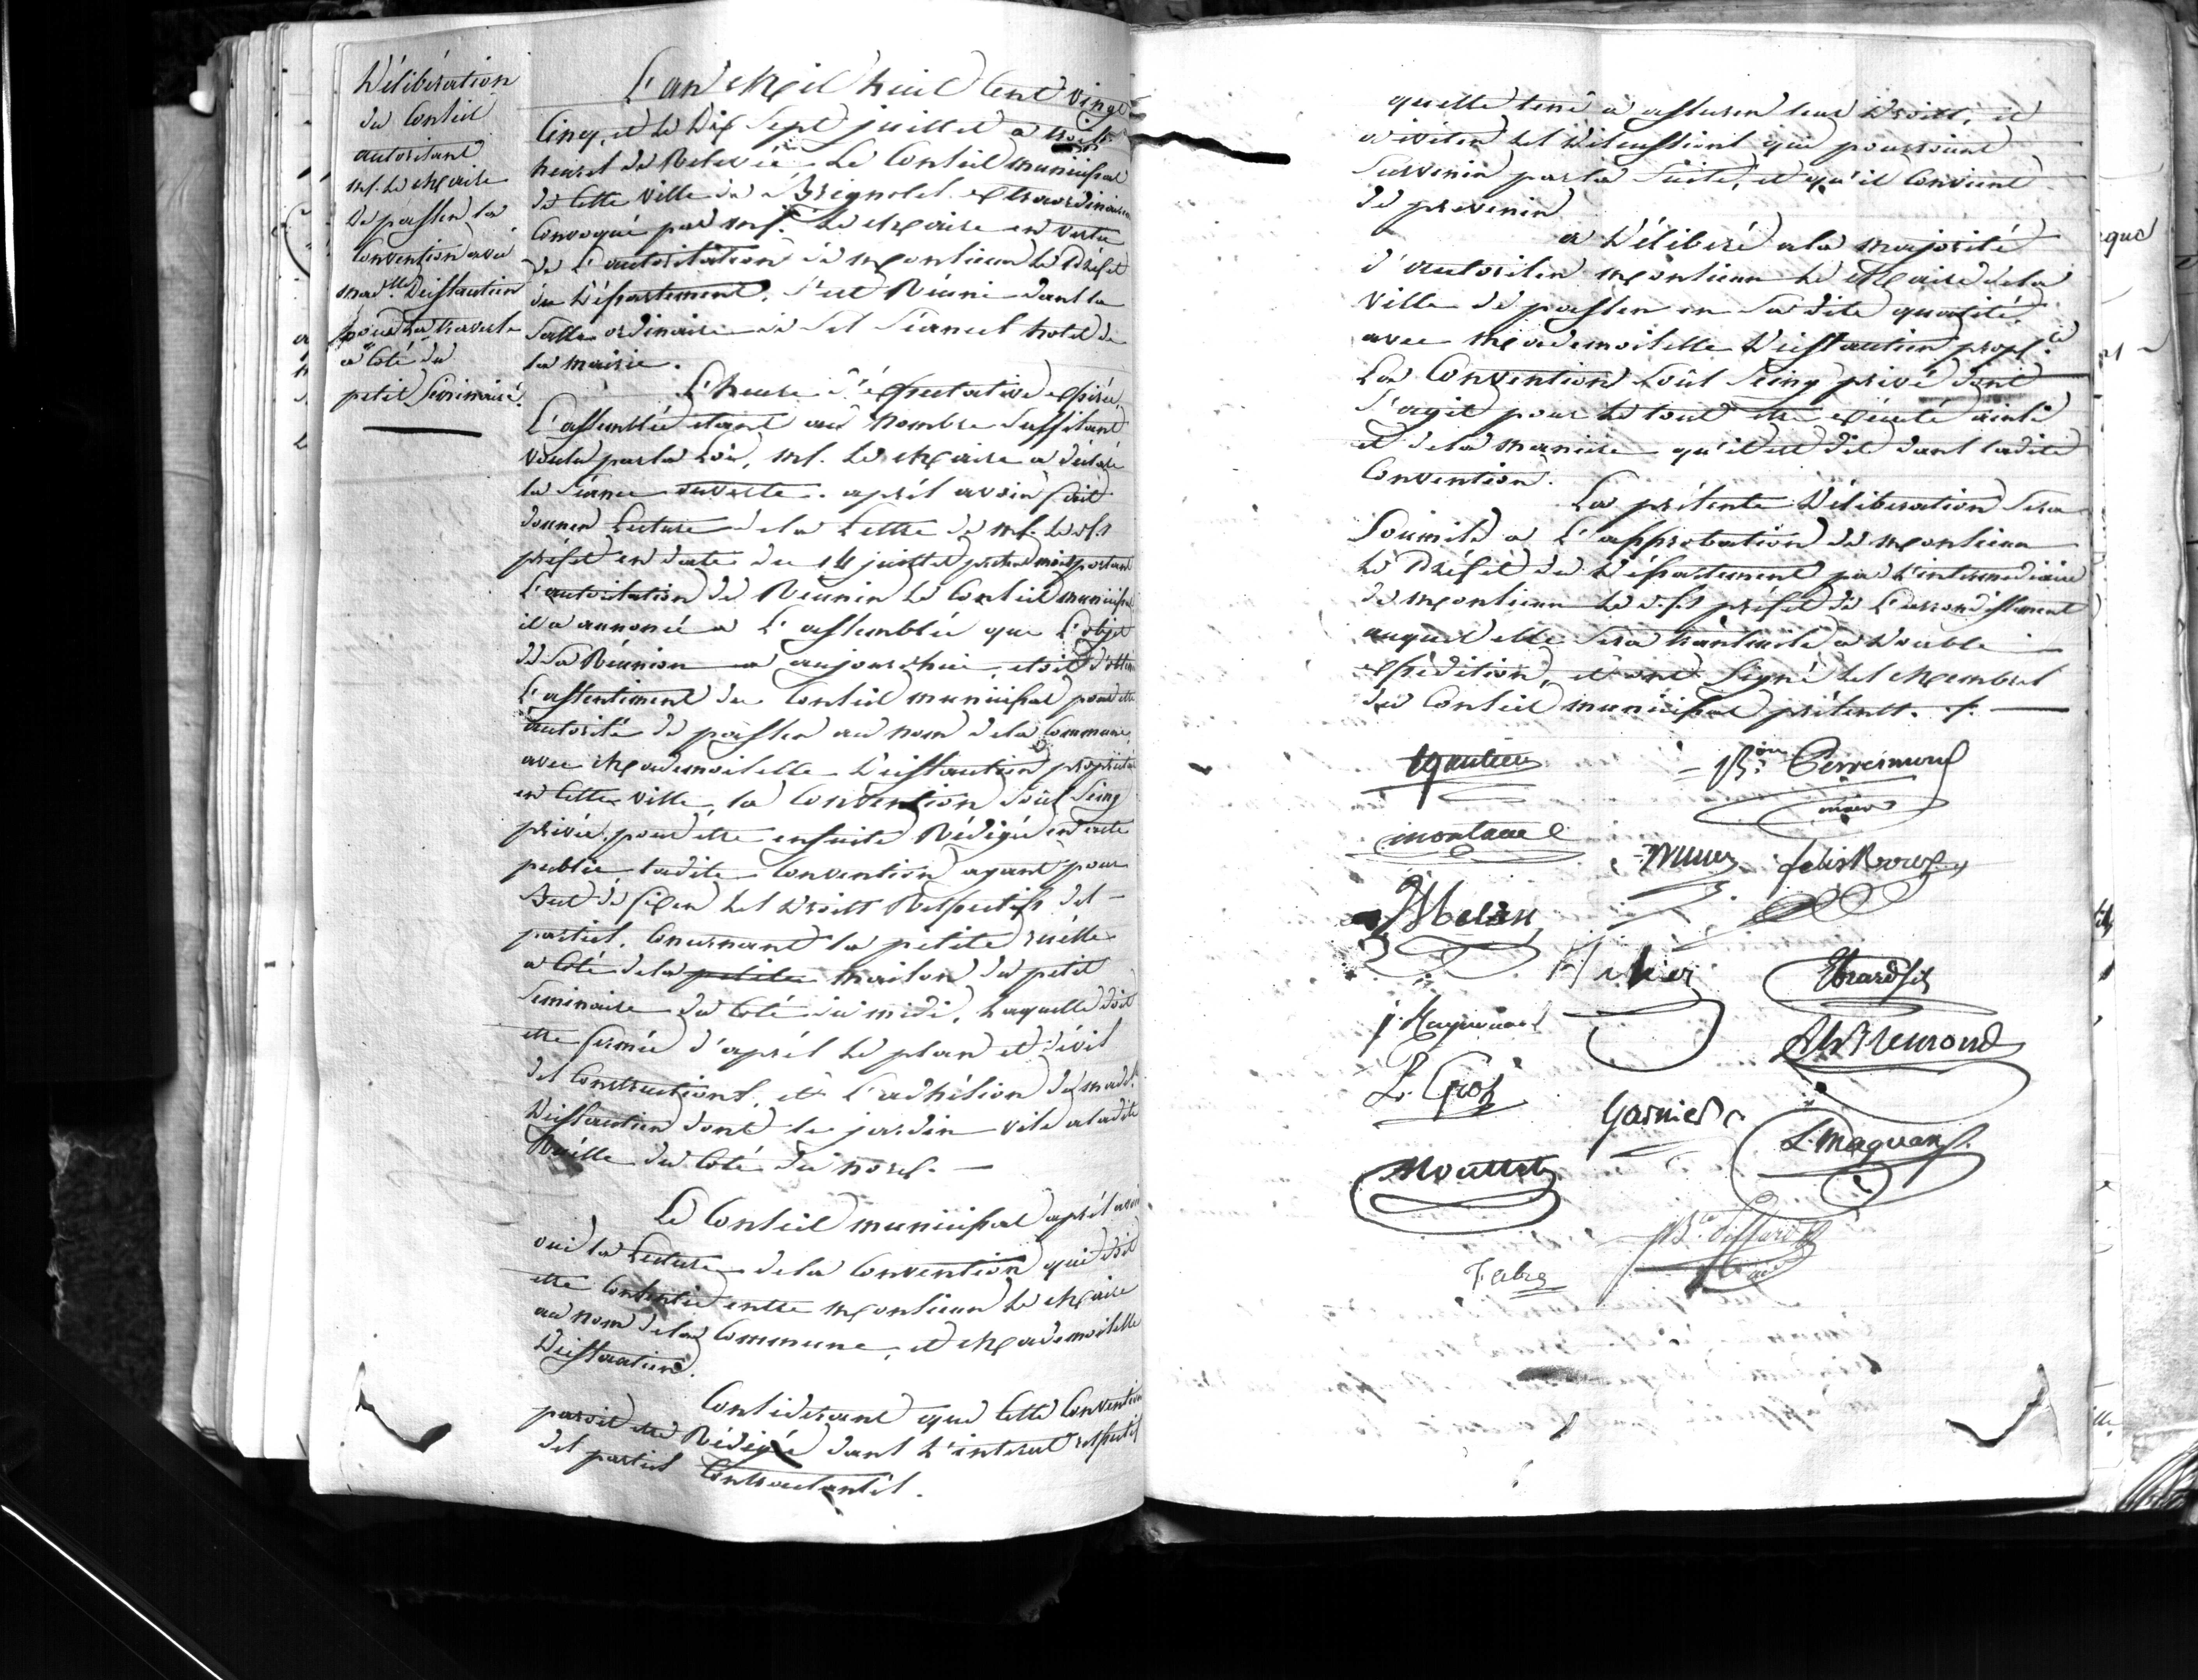 Délibération
du Conseil
autorisant
mr. le Maire
de passer la
Convention avec
madlle Deisfautier
pour la traverse
a Coté du
petit Séminaire.
L'an Mil huit Cent vingt
Cinq, et le Dix Sept juillet a trois
heures de Relevée Le Conseil municipal
de Cette Ville de Brignoles Extraordinairem
Convoqué par mr. Le Maire en vertu
de L'autorisation de monsieur Le Préfet
du Département, s'est Réuni dans la
Salle ordinaire de Ses Séances hotel de
la mairie.
L'heure d'expectative expirée,
L'assemblée etant au nombre Suffisant
voulu par la Loi, mr. Le Maire a déclaré
la Séance ouverte. après avoir fait
donner Lecture de la Lettre de mr. Le ss
préfet en date du 14 juillet portant
L'autorisation de Réunir Le Conseil municipal
il a annoncé a L'assemblée que L'objet
de Sa Réunion a aujourdhui, etoit d'obtenir
L'assentiment du Conseil municipal pour etre
autorisé de passer au nom de la Commune
avec Mademoiselle Deisfautier propriétaire
en Cette ville, la Convention Sous Seing
privée, pour être ensuite Rédigée en acte
public ladite Convention ayant pour
but de fixer Les Droits Respectifs des
parties, Concernant la petite ruelle
a Coté de la petite maison du petit
Seminaire du Coté du midi, Laquelle doit
etre fermée d'après Le plan et dévis
des Constructions, et L'adhésion de madlle
Deisfautier dont le jardin vise a ladite
Ruelle du Coté du nord.
Le Conseil municipal après avoir
oui la Lecture de la Convention qui doit
etre Consentie entre monsieur Le Maire
au nom de la Commune, et Mademoiselle
Deisfautier.
Considerant que Cette Convention
paroit etre Rédigée dans L'interet respectif
des parties Contractantes.
quelle tend a assurer leur Droits, et
a eviter les discussions qui pourroient
Survenir par la Suite, et qu'il Convient
de prevenir
a Délibéré a la majorité
d'autoriser monsieur Le Maire de la
Ville de passer en Sa dite qualité
avec Mademoiselle Deisfautier propre
La Convention Sous Seing privé dont
S'agit pour Le tout etre exécuté ainsi
et de la maniere qu'il est dit dans ladite
Convention.
La présente Délibération Sera
Soumise a L'approbation de monsieur
Le Préfet du Département par L'intermediaire
de monsieur Le ss préfet de L'arrondissement
auquel elle Sera transmise a Double
expédition, et ont Signé Les Membres
du Conseil municipal présents.
Gautier
Perreimond
maire
montaud
felix Roux
Melan
J. Raynouard
L. Gros
Garnier
L. Maquan
Mouttet
Fabre